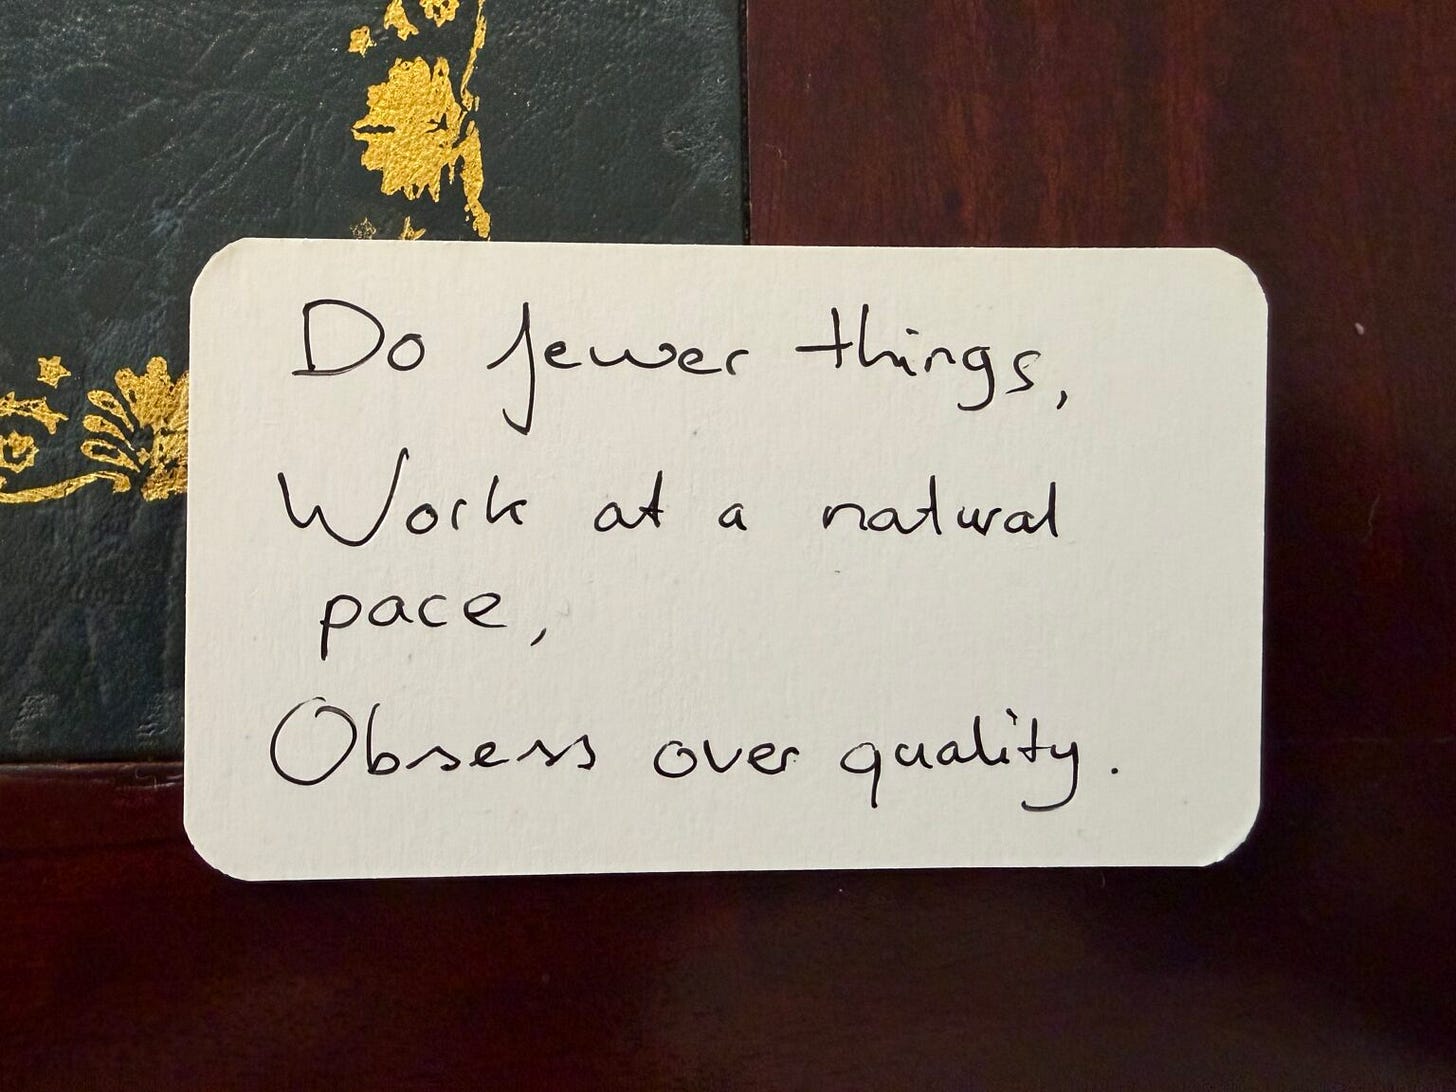 Do fewer things,
Work at a natural
pace,
Obsess over quality.